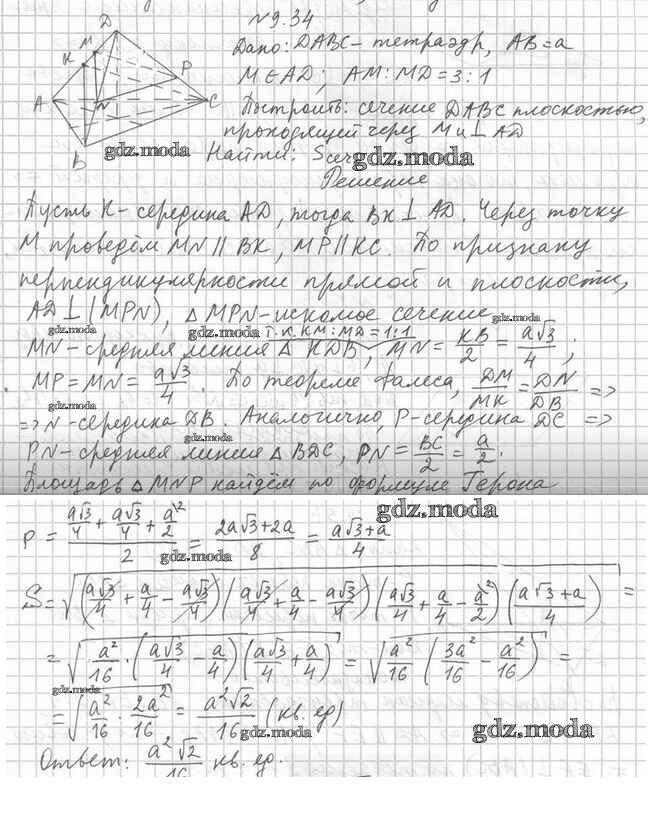 №9.34
Дано: DABC - тетраэдр, AB = a
M ∈ AD; AM:MD = 3:1
Построить: сечение DABC плоскостью,
проходящей через M и ⊥ AD
Найти: Sсеч
Решение
D
M
K
P
A
N
C
B
gdz.moda
gdz.moda
Пусть K - середина AD, тогда BK ⊥ AD. Через точку
M проведём MN || BK, MP || KC. По признаку
перпендикулярности прямой и плоскости,
AD ⊥ (MPN), △ MPN - искомое сечение
gdz.moda
gdz.moda
gdz.moda
т.к. KM:MD = 1:1
MN - средняя линия △ KDB, MN = KB/2 = a√3/4;
MP = MN = a√3/4. По теореме Фалеса, DM/MK = DN/DB =>
gdz.moda
=> N - середина DB. Аналогично, P - середина DC =>
gdz.moda
PN - средняя линия △ BDC, PN = BC/2 = a/2.
Площадь △ MNP найдём по формуле Герона
gdz.moda
p = (a√3/4 + a√3/4 + a/2)/2 = (2a√3+2a)/8 = (a√3+a)/4
gdz.moda
S = √((a√3/4 + a/4 - a√3/4)(a√3/4 + a/4 - a√3/4)(a√3/4 + a/4 - a/2)((a√3+a)/4)) =
= √(a²/16 · (a√3/4 - a/4)(a√3/4 + a/4)) = √(a²/16 (3a²/16 - a²/16)) =
gdz.moda
= √(a²/16 · 2a²/16) = a²√2/16 (кв. ед)
gdz.moda
gdz.moda
Ответ: a²√2/16 кв. ед.